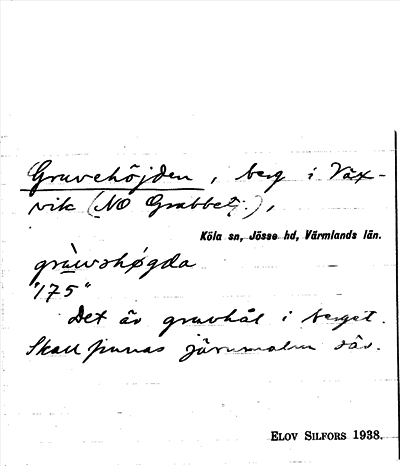 Gruvehöjden, berg i Växvik (NO Grabbet.),
Köla sn, Jösse hd, Värmlands län.
gruvəhøgda
"175"
Det är gruvhål i berget.
Skall finnas järnmalm där.
ELOV SILFORS 1938.